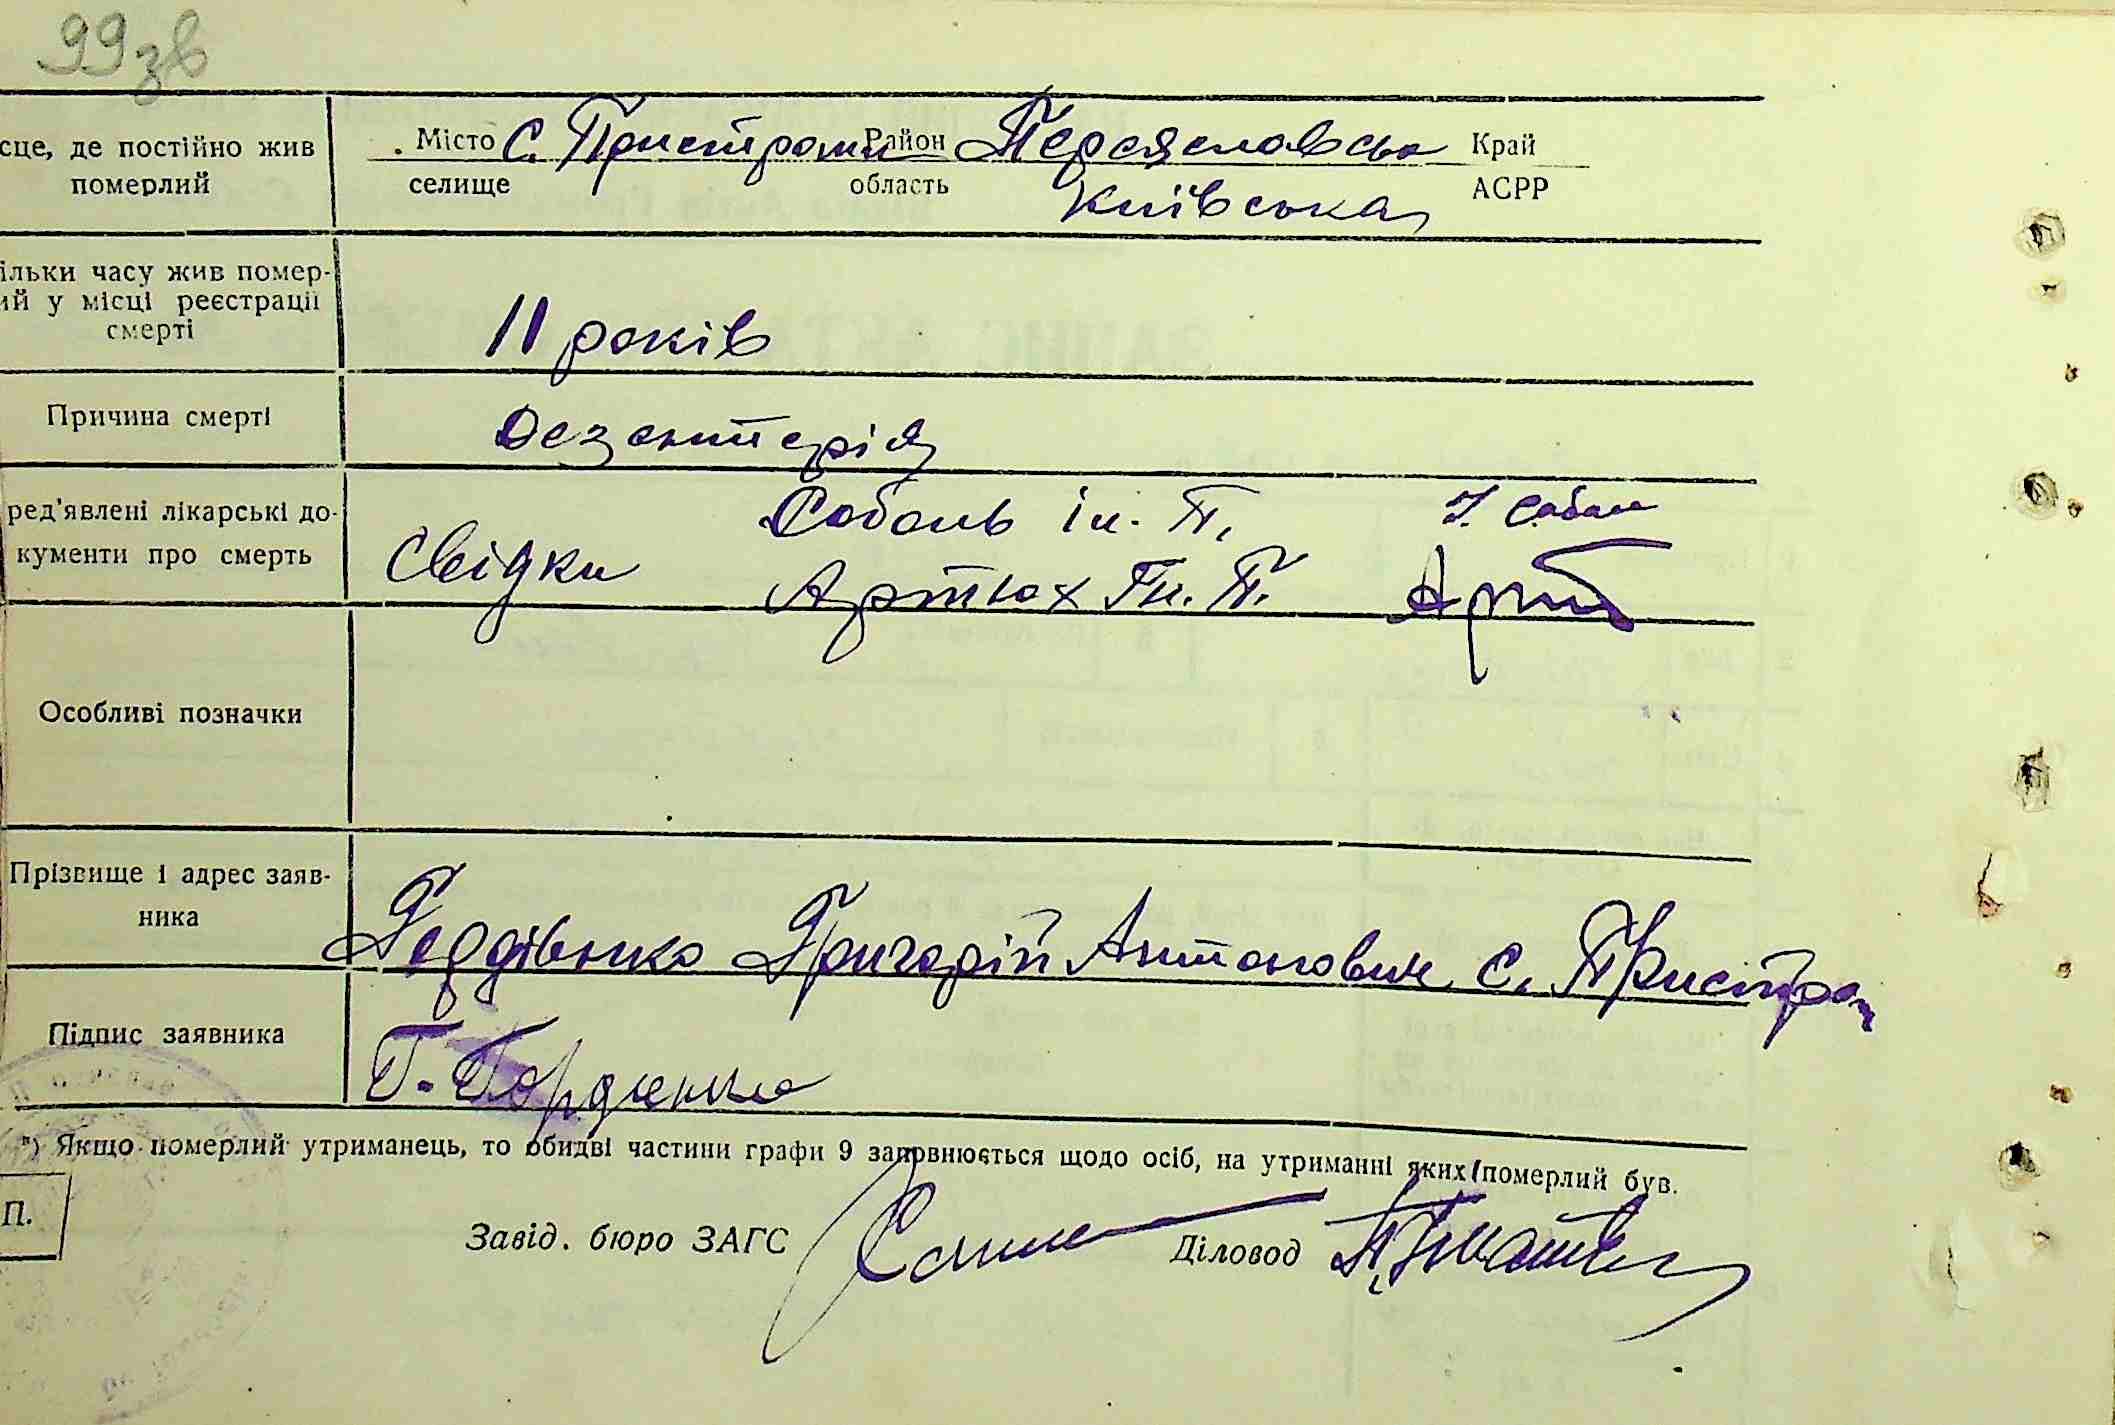 99зв
сце, де постійно жив
померлий
Місто с. Пристроми Район Переяславсько Край
селище область Київська АСРР
ільки часу жив помер-
ий у місці реєстрації
смерті
11 років
Причина смерті
Дезентерія
ред'явлені лікарські до-
кументи про смерть
Свідки
Соболь Ів. П.
Артюх Гн. П.
Особливі позначки
Прізвище і адрес заяв-
ника
Гордієнко Григорій Антонович с. Пристром
Підпис заявника
Г. Гордієнко
*) Якщо померлий утриманець, то обидві частини графи 9 заповнюється щодо осіб, на утриманні яких померлий був.
П.
Завід. бюро ЗАГС
Діловод